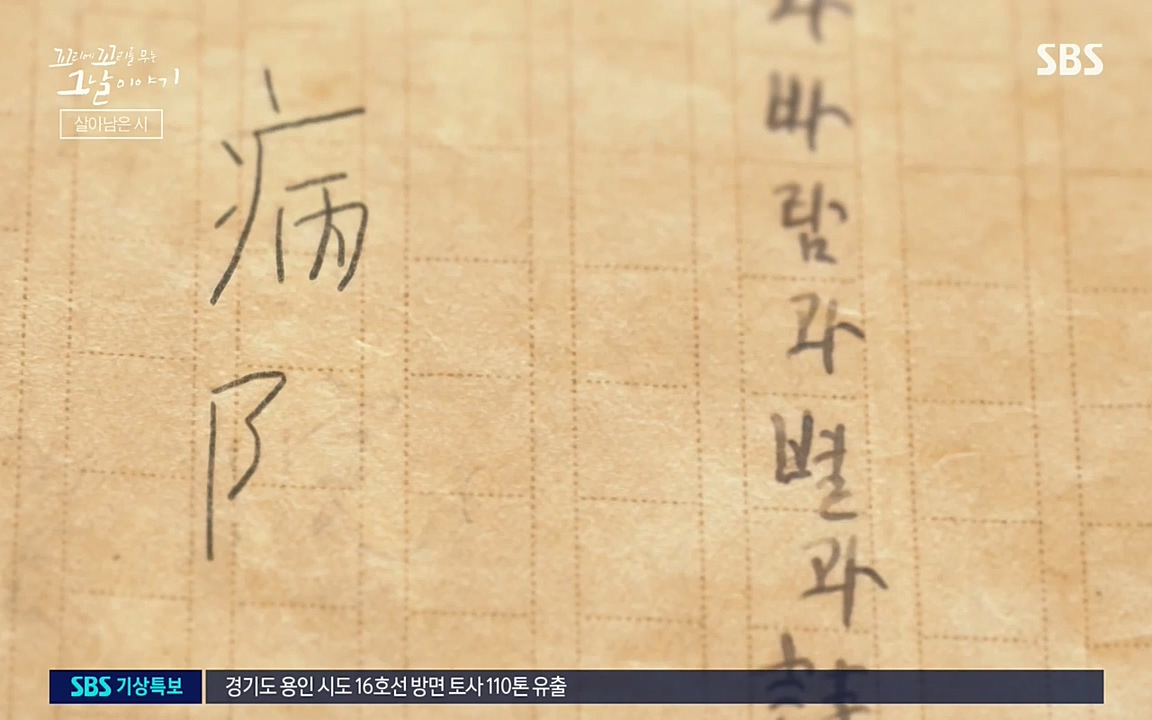 꼬리에 꼬리를 무는
그날 이야기
살아남은 시
SBS
바람과별과
病阝
SBS 기상특보
경기도 용인 시도 16호선 방면 토사 110톤 유출